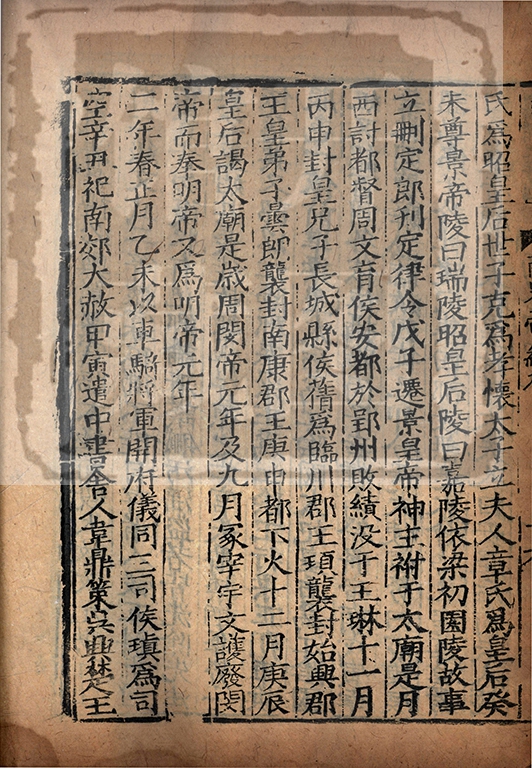 氏爲昭皇后世子克爲孝懷太子立夫人章氏爲皇后癸
未尊景帝陵曰瑞陵昭皇后陵曰嘉陵依梁初園陵故事
立刪定郎刋定律令戊子遷景皇帝神主祔于太廟是月
西討都督周文育侯安都於郢州敗績没于王琳十一月
丙申封皇兄子長城縣侯蒨爲臨川郡王頊襲封始興郡
王皇弟子曇郎襲封南康郡王庚申都下火十二月庚辰
皇后謁太廟是歳周閔帝元年及九月冢宰宇文護廢閔
帝而奉明帝又爲明帝元年
二年春正月乙未以車騎將軍開府儀同三司侯瑱爲司
空辛丑祀南郊大赦甲寅遣中書舍人韋鼎策吴興楚王